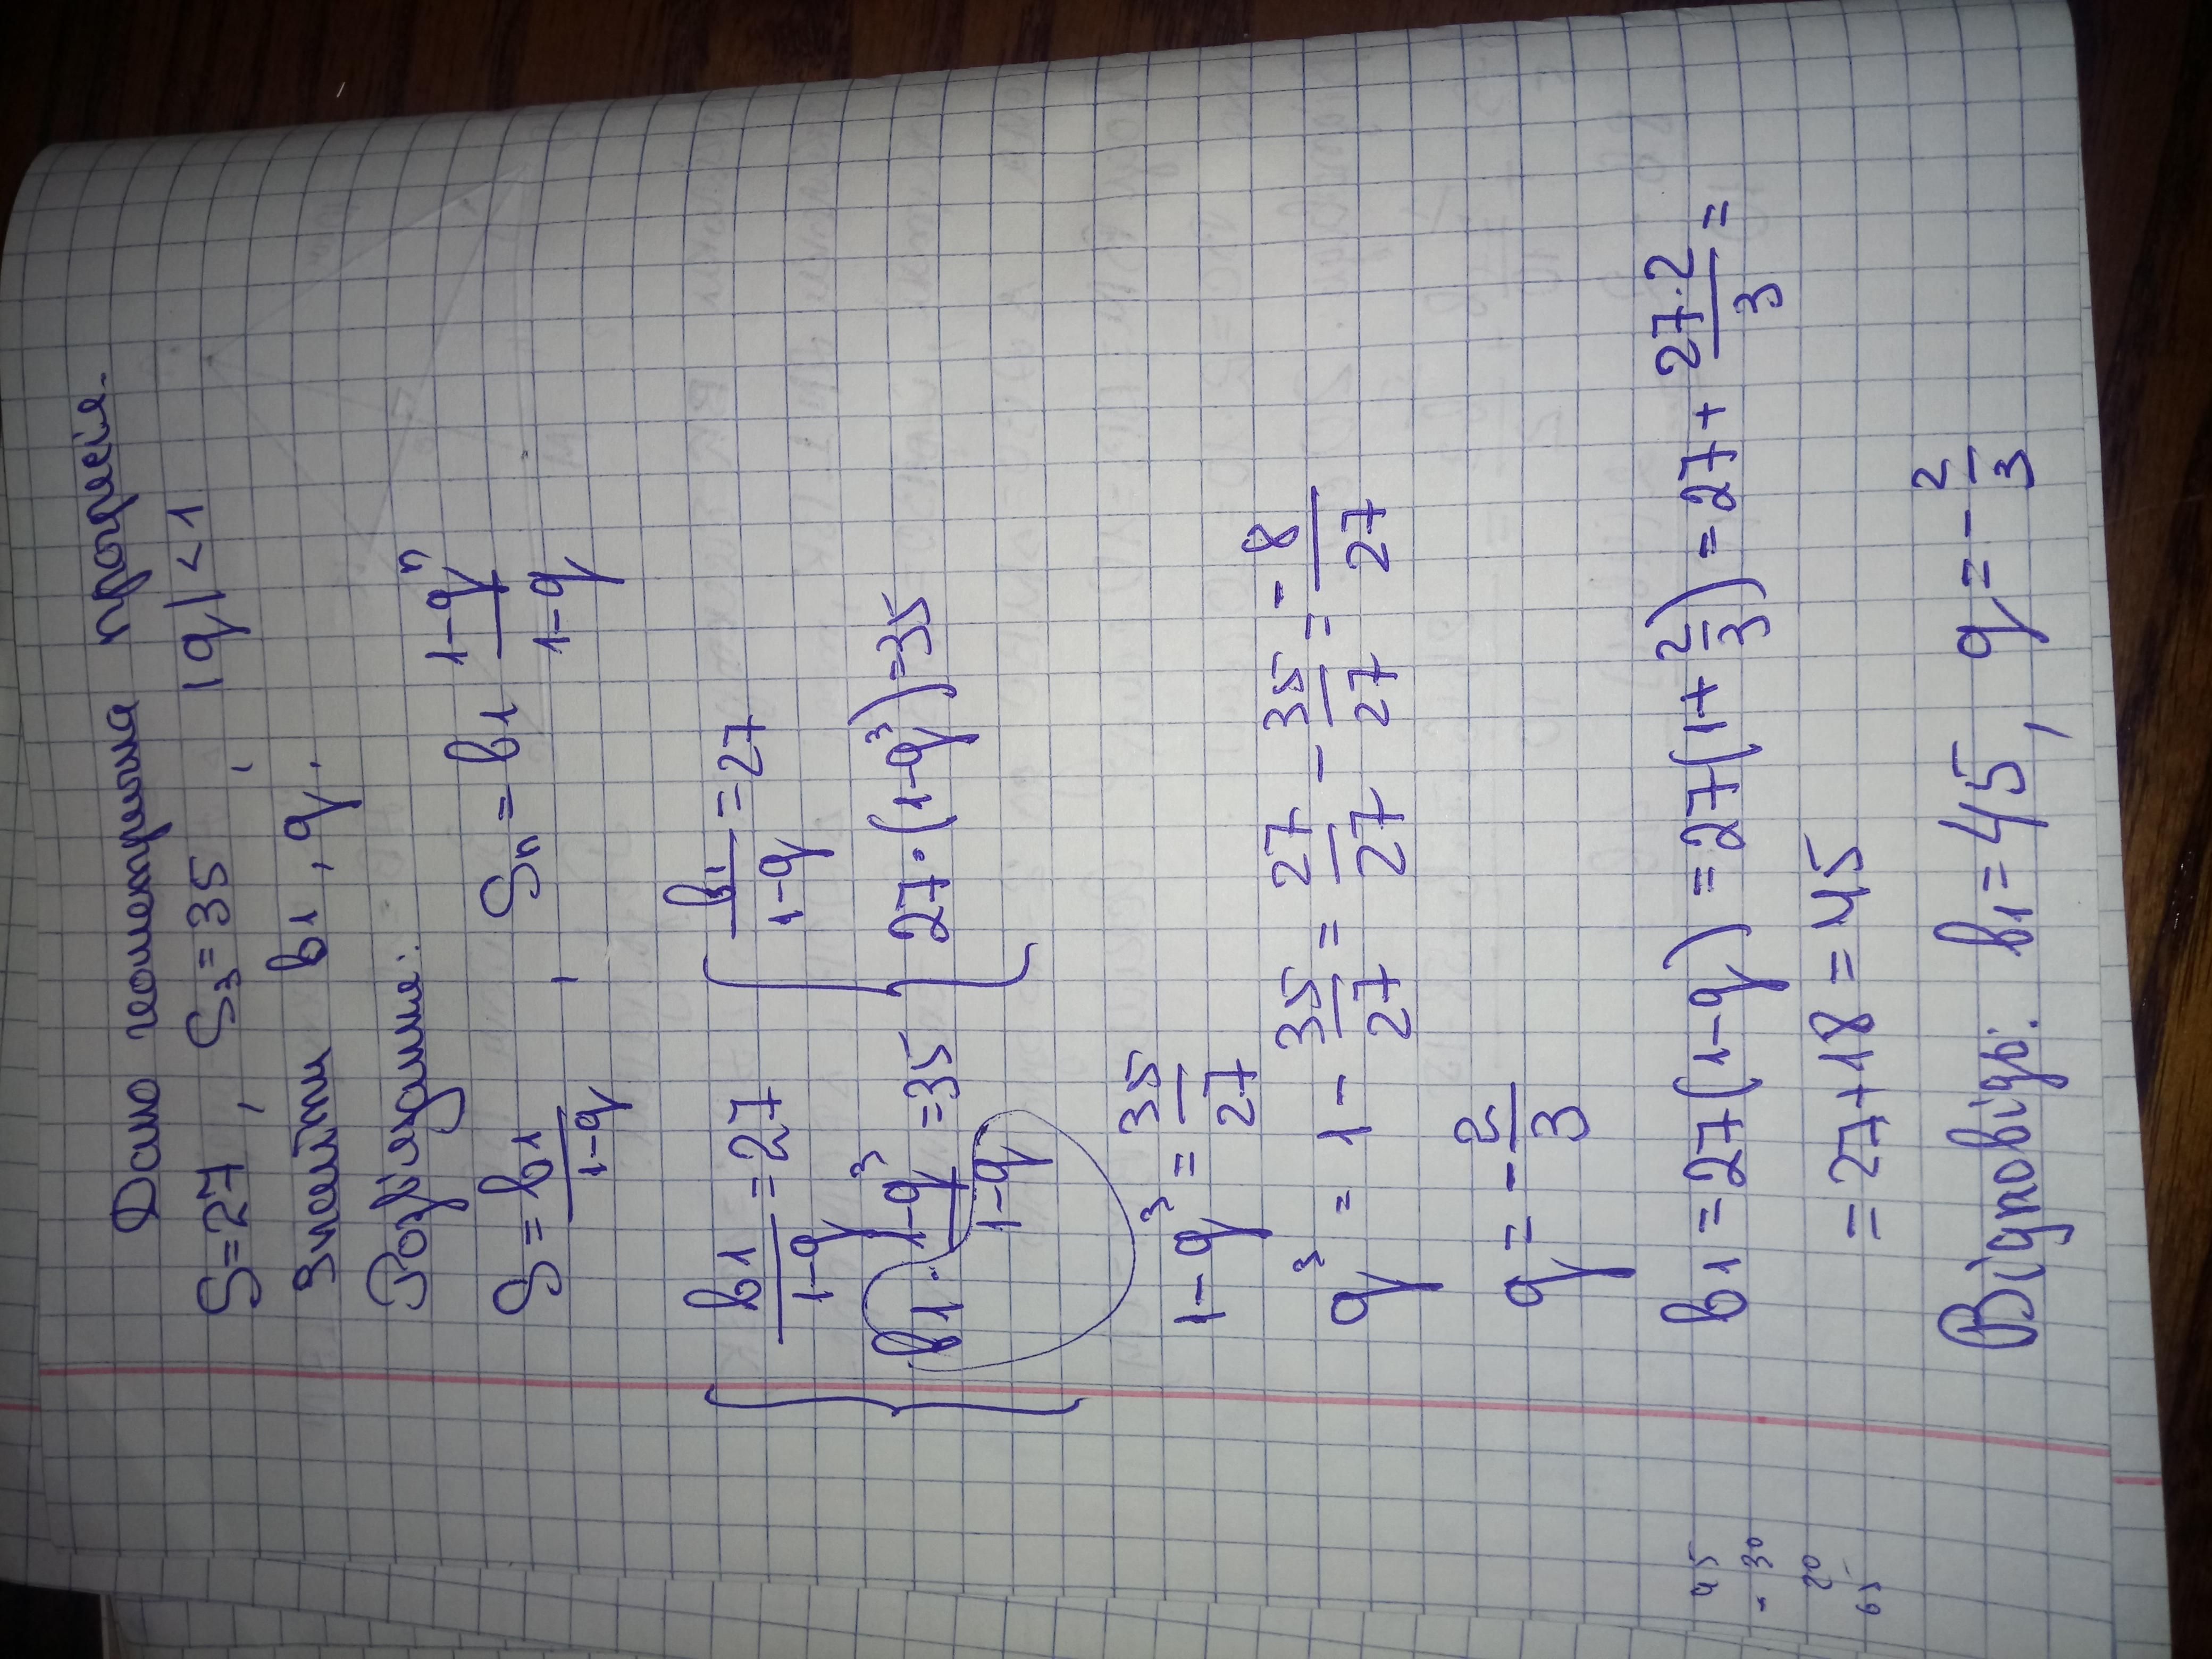 Дано геометрична прогресія.
S=27, S₃=35, |q|<1
Знайти b₁, q.
Розв'язання:
S = b₁/(1-q), Sₙ = b₁ (1-qⁿ)/(1-q)
{ b₁/(1-q) = 27 { b₁/(1-q) = 27
b₁ · (1-q³)/(1-q) = 35 27·(1-q³)=35
1-q³ = 35/27
q³ = 1 - 35/27 = 27/27 - 35/27 = - 8/27
q = - 2/3
b₁ = 27(1-q) = 27(1+2/3) = 27 + 27·2/3 =
= 27+18 = 45
Відповідь: b₁ = 45, q = - 2/3
45
- 30
20
65